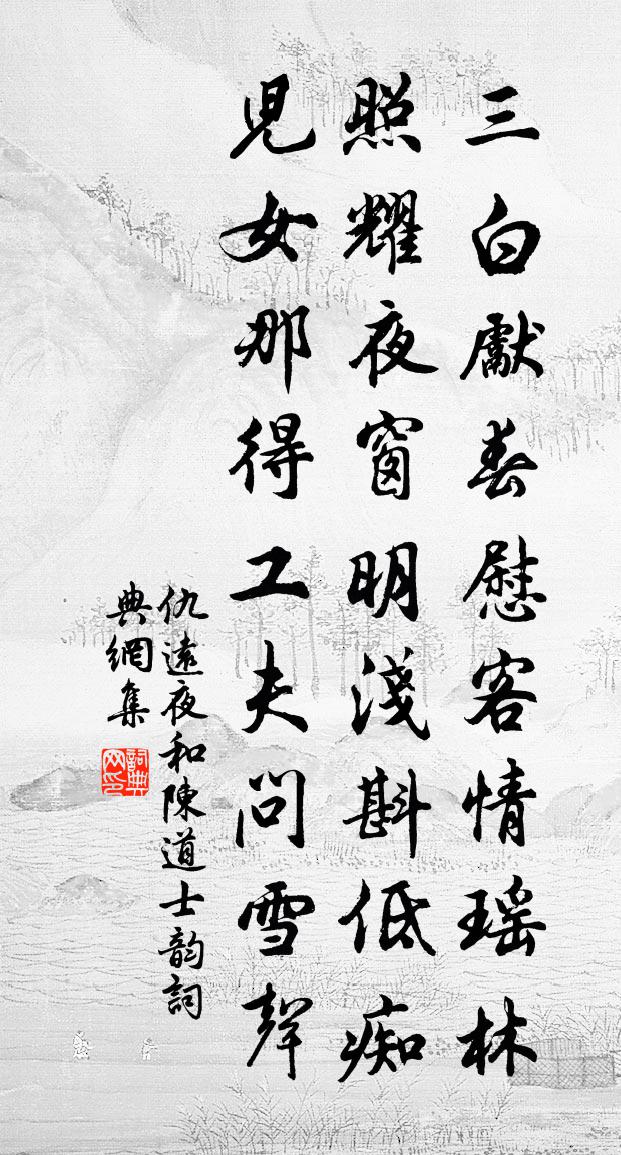 三白獻春慰客情瑶林
照耀夜窗明淺斟低痴
兒女那得工夫問雪聲
仇遠夜和陳道士韵詞
典網集
詞典
网印